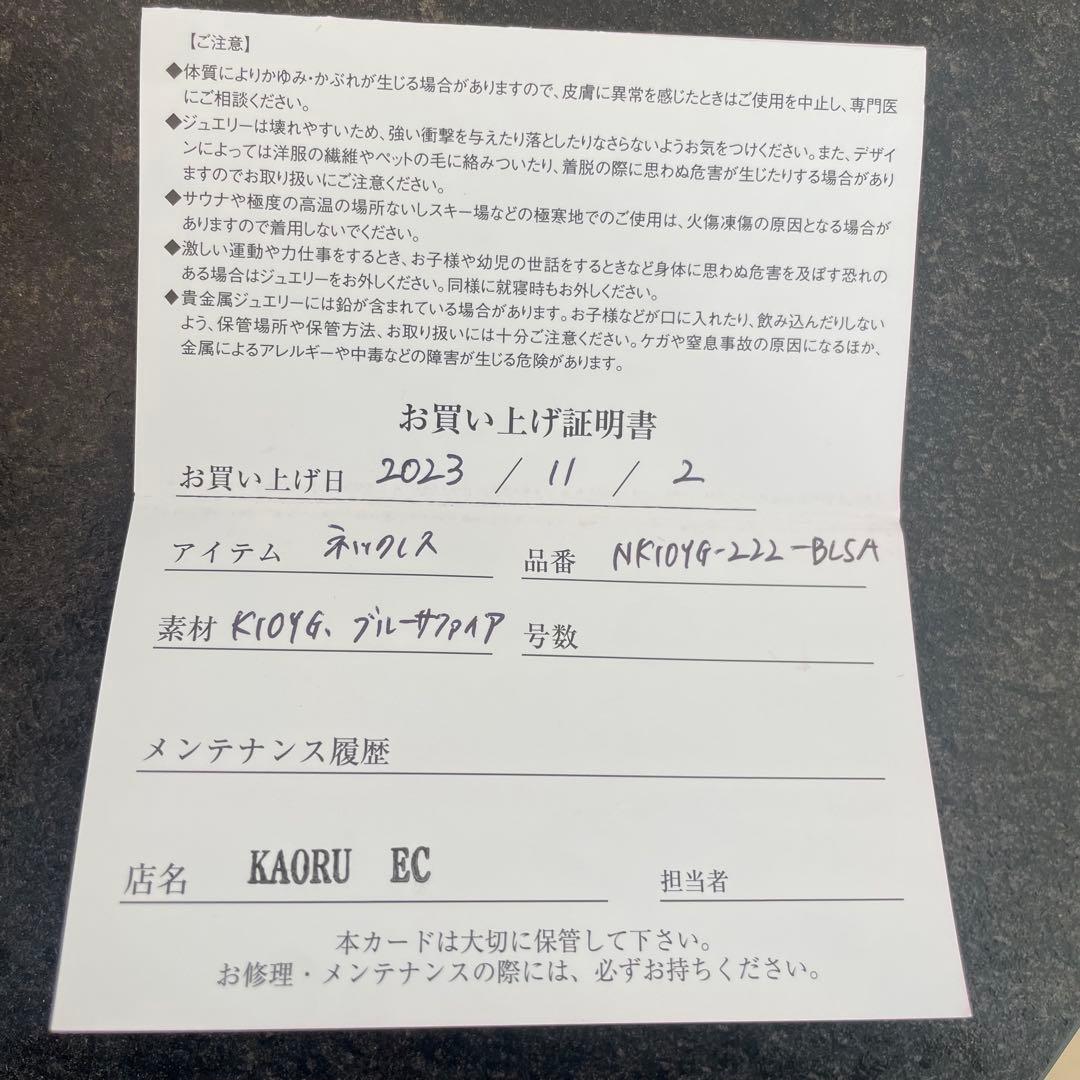 【ご注意】
◆体質によりかゆみ・かぶれが生じる場合がありますので、皮膚に異常を感じたときはご使用を中止し、専門医
にご相談ください。
◆ジュエリーは壊れやすいため、強い衝撃を与えたり落としたりなさらないようお気をつけください。また、デザイ
ンによっては洋服の繊維やペットの毛に絡みついたり、着脱の際に思わぬ危害が生じたりする場合があり
ますのでお取り扱いにご注意ください。
◆サウナや極度の高温の場所ないしスキー場などの極寒地でのご使用は、火傷凍傷の原因となる場合が
ありますので着用しないでください。
◆激しい運動や力仕事をするとき、お子様や幼児の世話をするときなど身体に思わぬ危害を及ぼす恐れの
ある場合はジュエリーをお外しください。同様に就寝時もお外しください。
◆貴金属ジュエリーには鉛が含まれている場合があります。お子様などが口に入れたり、飲み込んだりしない
よう、保管場所や保管方法、お取り扱いには十分ご注意ください。ケガや窒息事故の原因になるほか、
金属によるアレルギーや中毒などの障害が生じる危険があります。
お買い上げ証明書
お買い上げ日 2023 / 11 / 2
アイテム ネックレス 品番 NK10YG-222-BLSA
素材 K10YG、ブルーサファイア 号数
メンテナンス履歴
店名 KAORU EC 担当者
本カードは大切に保管して下さい。
お修理・メンテナンスの際には、必ずお持ちください。